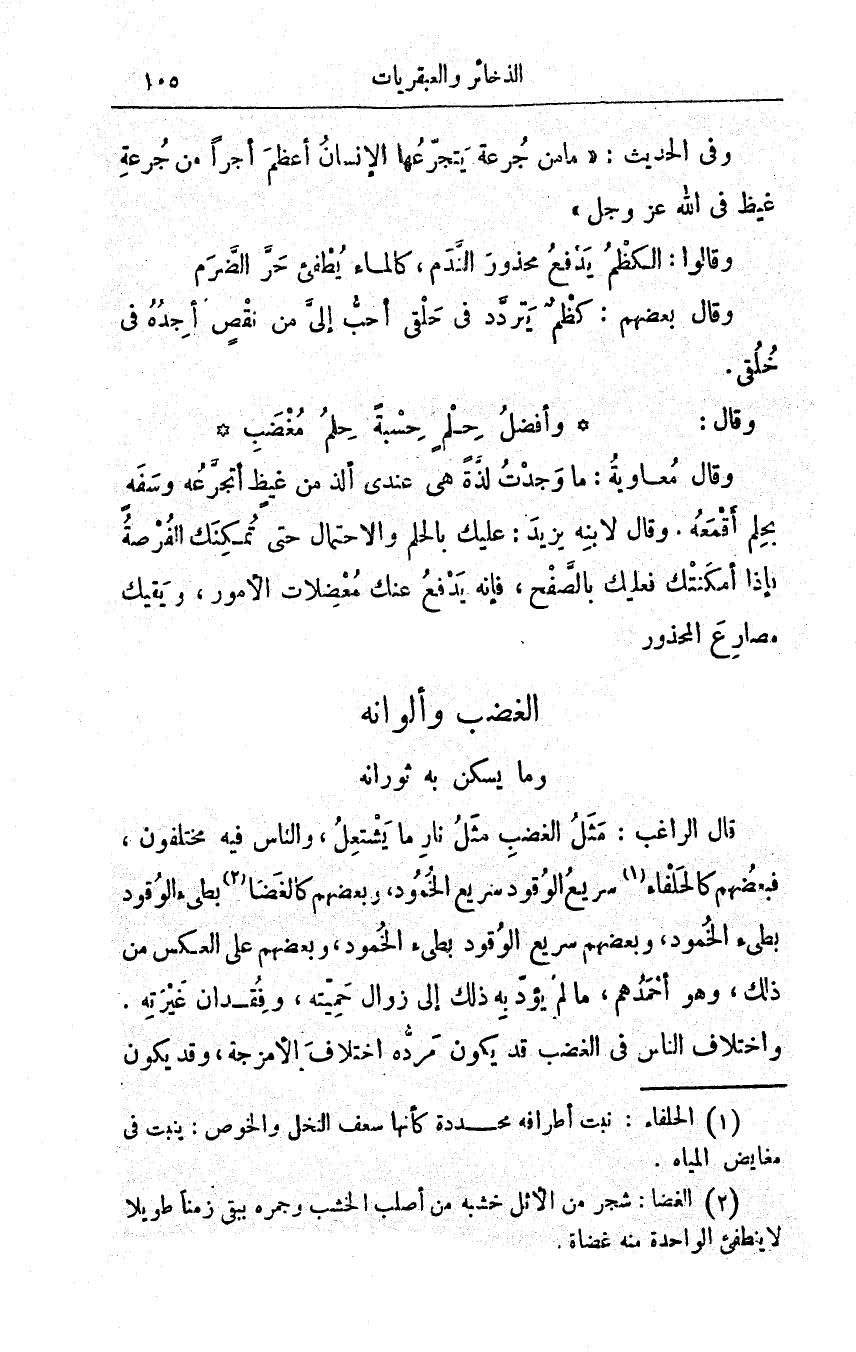 الذخائر والعبقريات ١٠٥
وفى الحديث : « مامن جُرعة يَتجرّعُها الإنسانُ أعظمَ أجراً من جُرعةِ
غيظ فى الله عز وجل »
وقالوا : الكظْمُ يَدْفعُ محذورَ النَّدَم ، كالماء يُطْفئ حَرَّ الضَّرَم
وقال بعضهم : كَظْمٌ يَتردَّد فى حَلْقى أحبُّ إلىَّ من نقْصٍ أجدُهُ فى
خُلُقى .
وقال : * وأفضلُ حِلْمٍ حِسْبةً حِلمُ مُغْضَبِ *
وقال مُعاويةُ : ما وَجدْتُ لذَّةً هى عندى ألذ من غيظٍ أتجرَّعُه وسَفَهٍ
بحِلم أَقْمَعُه . وقال لابنِه يزيدَ : عليك بالحلم والاحتمال حتى تُمكِنَك الفُرْصةُ
فإذا أمكَنتْك فعليك بالصَّفْح ، فإنه يَدْفعُ عنك مُعْضِلات الأمور ، ويَقيك
مصارِعَ المحذور
الغضب وألوانه
وما يسكن به ثورانه
قال الراغب : مَثَلُ الغضبِ مثَلُ نارٍ ما يَشْتعِلُ ، والناس فيه مختلفون ،
فبعضُهم كالحَلْفاء (١) سريعُ الوُقود سريع الخُمُود، وبعضهم كالغَضَا (٢) بطىء الوُقود
بطىء الخُمود، وبعضهم سريع الوُقود بطىء الخُمود، وبعضهم على العكس من
ذلك ، وهو أحْمَدُهم ، مالمْ يؤدّ به ذلك إلى زوال حَمِيّته ، وفُقْدان غَيْرَتِهِ .
واختلاف الناس فى الغضب قد يكون مَردُّه اختلافَ الأمزجة ، وقد يكون
(١) الحلفاء : نبت أطرافه محددة كأنها سعف النخل والخوص : ينبت فى
مغايض المياه .
(٢) الغضا : شجر من الأثل خشبه من أصلب الخشب وجمره يبقى زمناً طويلا
لاينطفئ الواحدة منه غضاة .